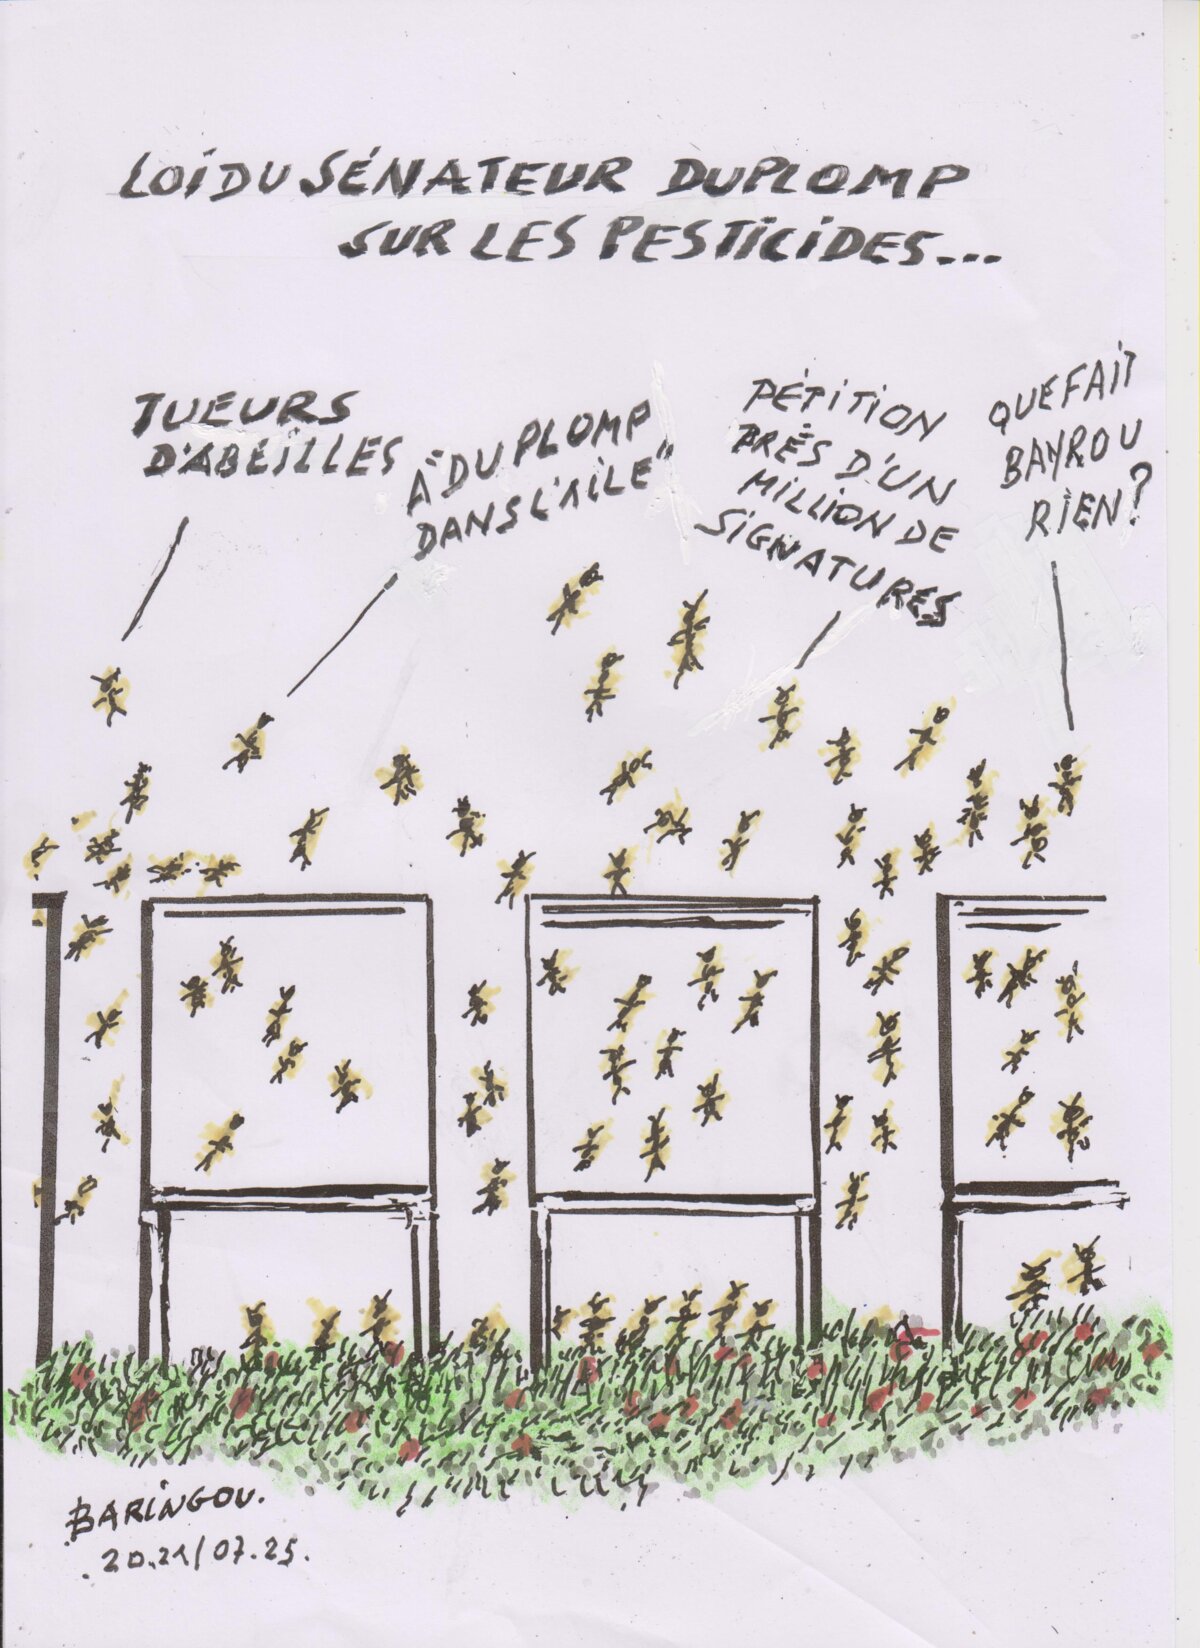 LOI DU SÉNATEUR DUPLOMP
SUR LES PESTICIDES...
TUEURS
D'ABEILLES
A "DU PLOMP
DANS L'AILE"
PÉTITION
PRÈS D'UN
MILLION DE
SIGNATURES
QUE FAIT
BAYROU
RIEN?
BARINGOU.
20.21/07.25.